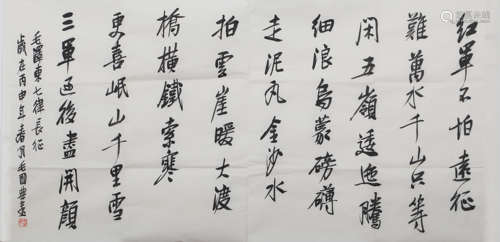 紅軍不怕遠征
難萬水千山只等
閑五嶺逶迤騰
細浪烏蒙磅礴
走泥丸金沙水
拍雲崖暖大渡
橋橫鐵索寒
更喜岷山千里雪
三軍過後盡開顏
毛澤東七律長征
歲在丙申年春月毛國典書